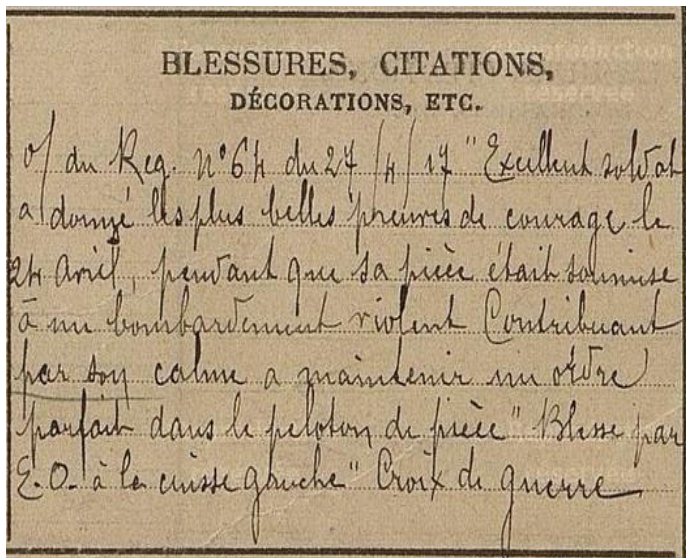 BLESSURES, CITATIONS,
DÉCORATIONS, ETC.
o/ du Reg. n° 64 du 27/4/17 "Excellent soldat
a donné les plus belles preuves de courage le
24 Avril, pendant que sa pièce était soumise
à un bombardement violent Contribuant
par son calme a maintenir un ordre
parfait dans le peloton de pièce" Blessé par
E.O. à la cuisse gauche" Croix de guerre